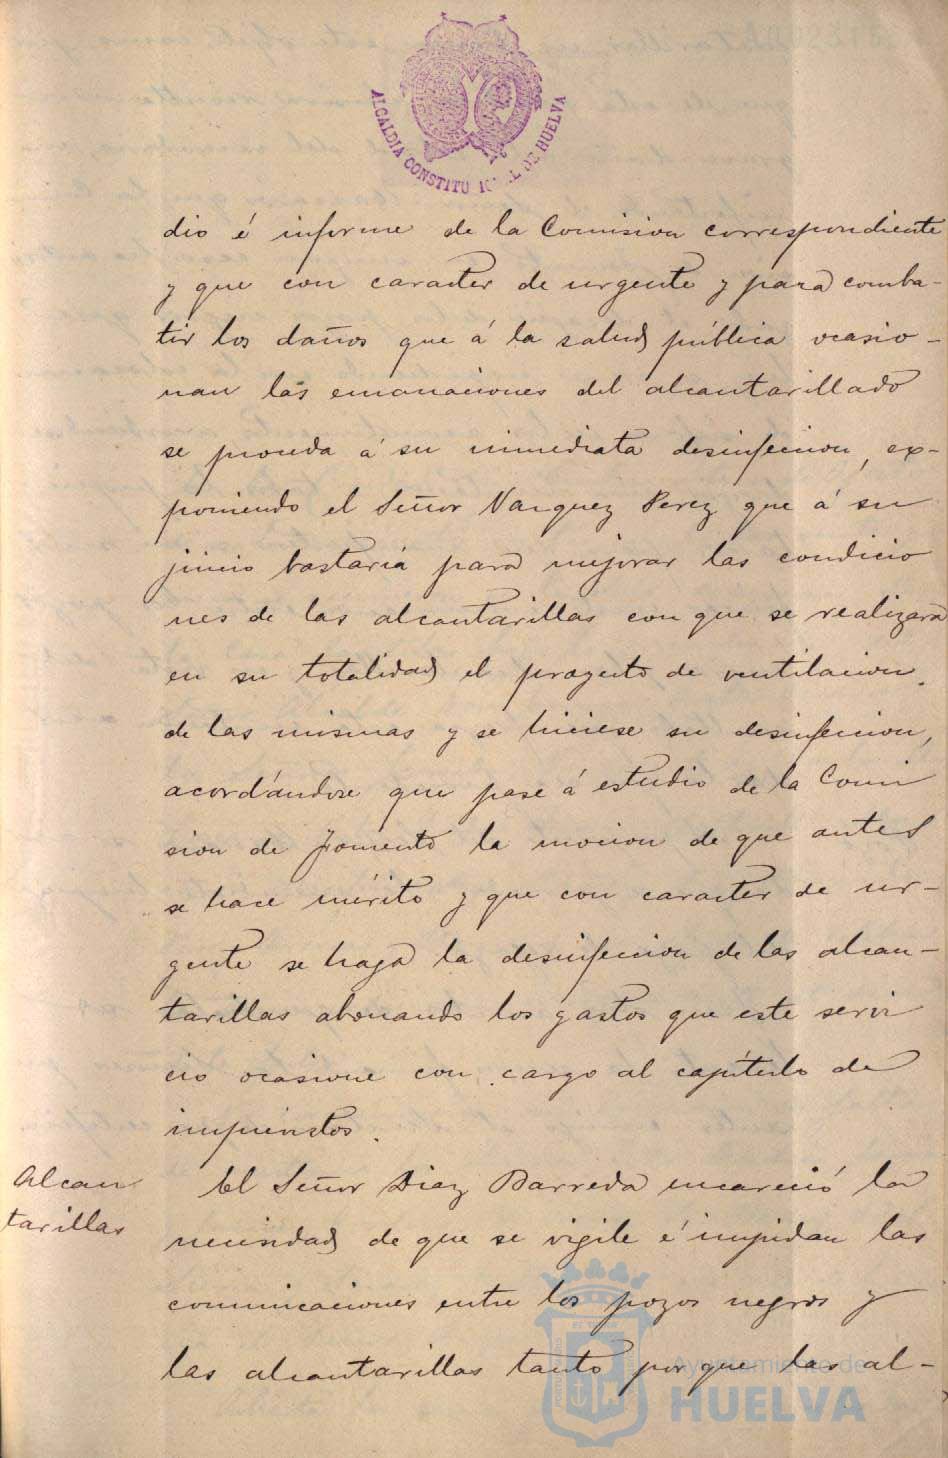 ALCALDIA CONSTITU DE HUELVA
dio é informe de la Comision correspondiente
y que con caracter de urgente y para comba-
tir los daños que á la salud pública ocasio-
nan las emanaciones del alcantarillado
se proceda á su inmediata desinfeccion, ex-
poniendo el Señor Vazquez Perez que á su
juicio bastaria para mejorar las condicio
nes de las alcantarillas con que se realizara
en su totalidad el proyecto de ventilacion
de las mismas y se hiciese su desinfeccion,
acordándose que pase á estudio de la Comi
sion de Fomento la mocion de que antes
se hace mérito y que con caracter de ur-
gente se haga la desinfeccion de las alcan-
tarillas abonando los gastos que este servi
cio ocasione con cargo al capítulo de
imprevistos.
Alcan
tarillas
El Señor Diaz Barreda encareció la
necesidad de que se vigile é impidan las
comunicaciones entre los pozos negros y
las alcantarillas tanto porque las al-
Ayuntamiento de
HUELVA